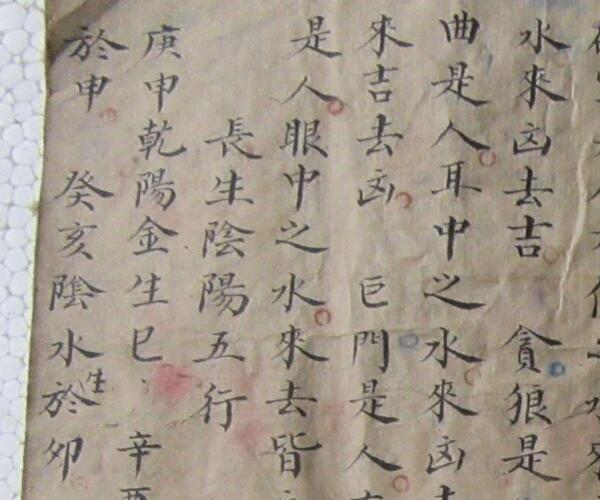 水來凶去吉　貪狼是
曲是人耳中之水來凶去
來吉去凶　巨門是人
是人眼中之水來去皆
長生陰陽五行
庚申乾陽金生巳　辛酉
於申　癸亥陰水生於卯